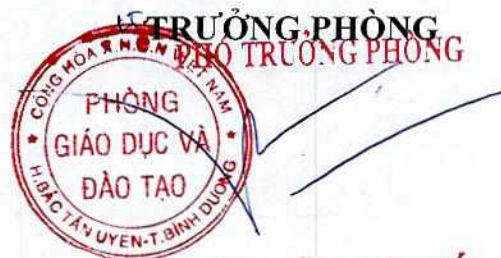 TRƯỞNG PHÒNG
PHÓ TRƯỞNG PHÒNG
CỘNG HÒA X.H.C.N VIỆT NAM
PHÒNG
GIÁO DỤC VÀ
ĐÀO TẠO
H.BẮC TÂN UYÊN-T.BÌNH DƯƠNG